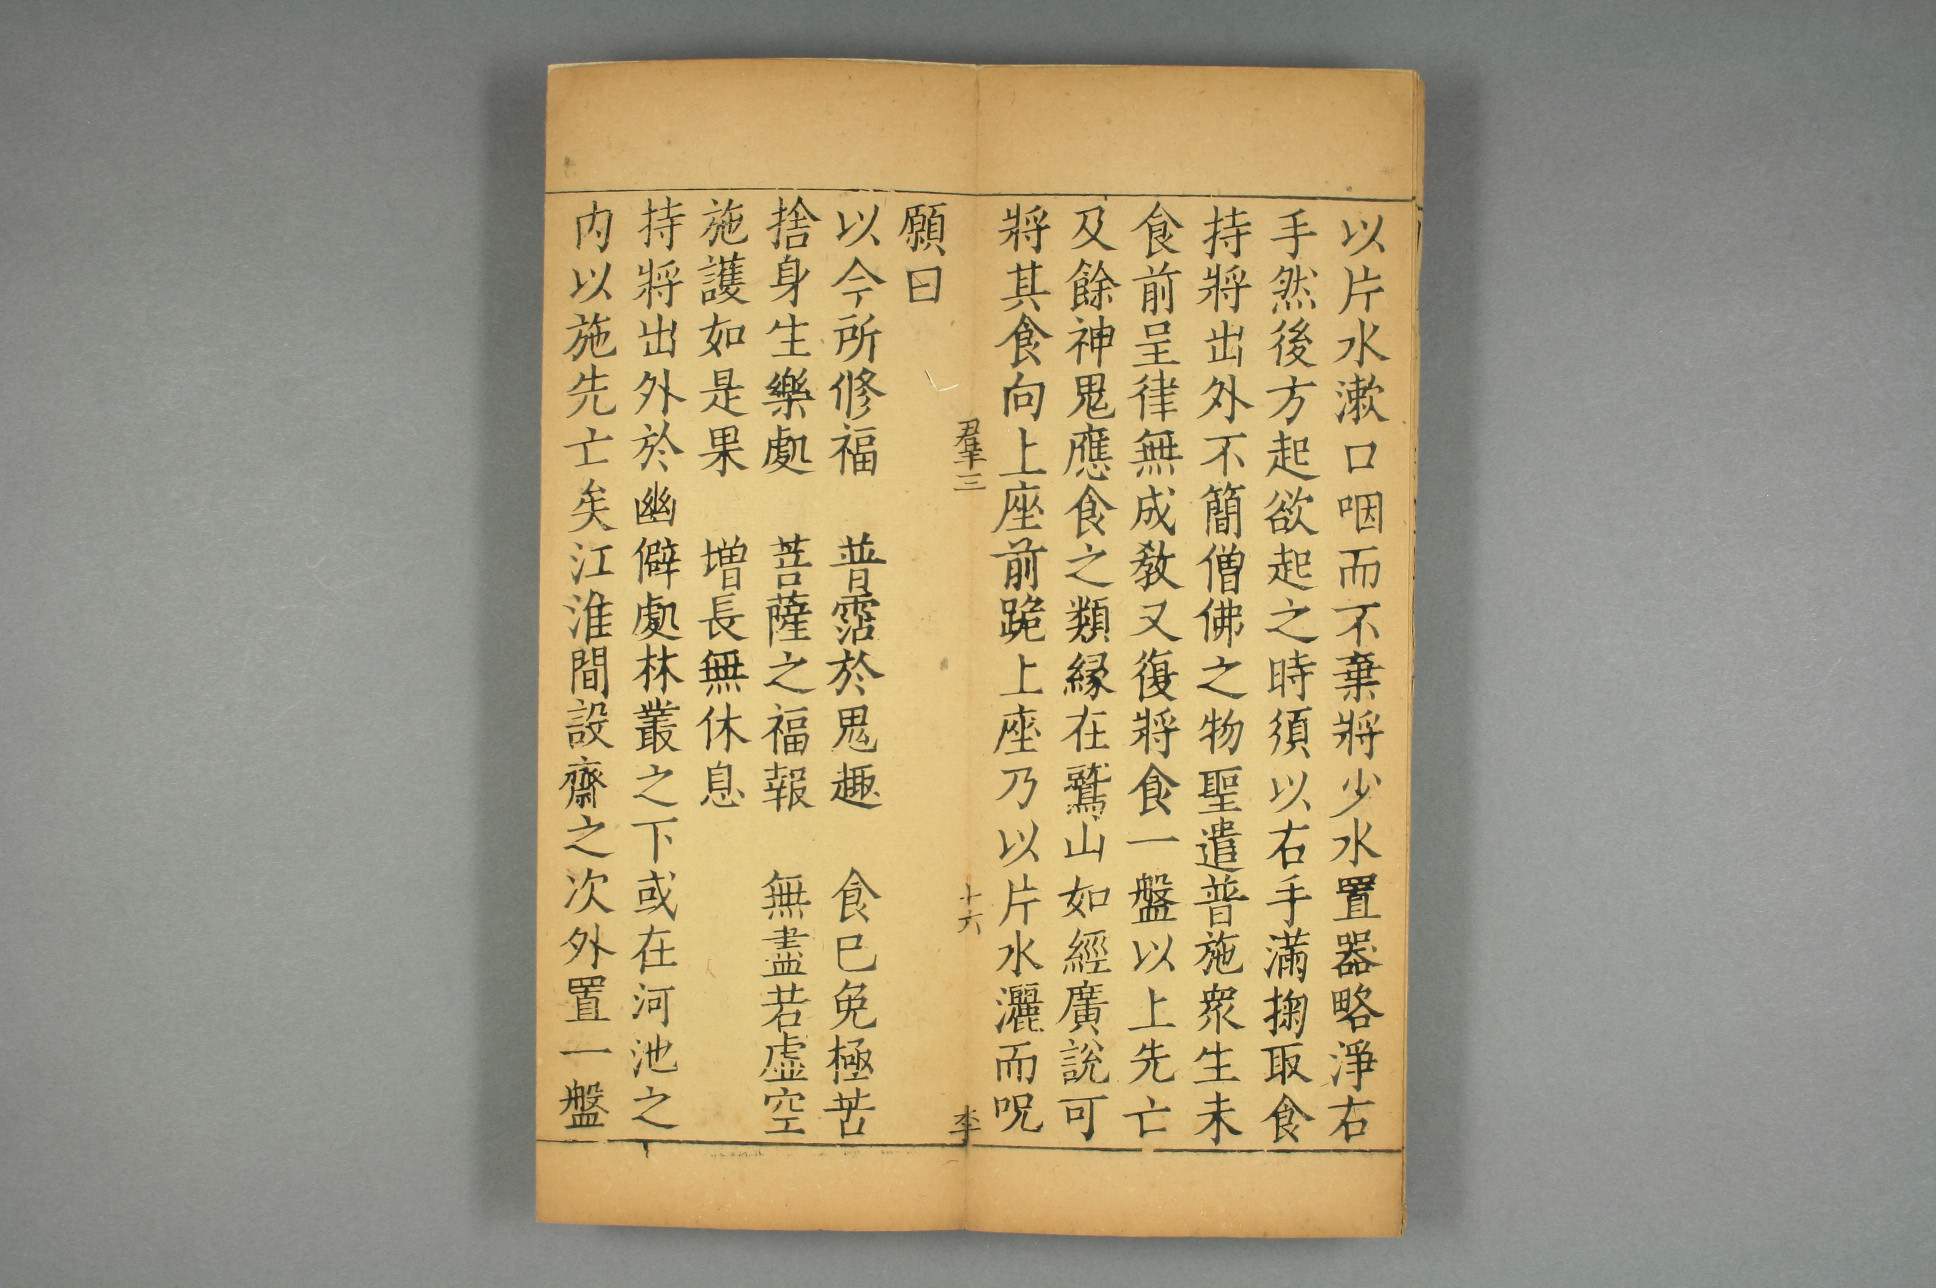 以片水漱口咽而不棄將少水置器略淨右
手然後方起欲起之時須以右手滿掬取食
持將出外不簡僧佛之物聖遣普施衆生未
食前呈律無成教又復將食一盤以上先亡
及餘神鬼應食之類緣在鷲山如經廣說可
將其食向上座前跪上座乃以片水灑而呪
羣三
十六
李
願曰
以今所修福　普霑於鬼趣　食已免極苦
捨身生樂處　菩薩之福報　無盡若虛空
施護如是果　增長無休息
持將出外於幽僻處林叢之下或在河池之
内以施先亡矣江淮間設齋之次外置一盤